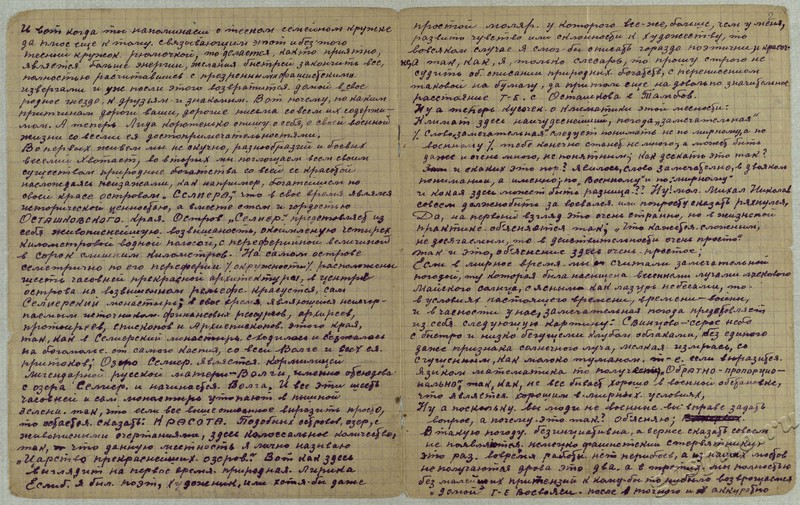 И вот когда ты напоминаеш о тесном семейном кружке
да плюс еще к тому. связывающим этот и без того
тесний кружок рюмочкой, то делается, как то приятно,
является больше энергии, желания быстрей закончить все,
полностью расчитавшись с презренными фашистскими
извергами и уже после этого возвратится домой в свое
родное гнездо, к друзьям и знакомым. Вот почему, по каким
причинам дороги ваши, дорогие письма со всем их содержа-
мом. А теперь Лида коротенько опишу о себе, о своей военной
жизни со всеми ея достопримечательностями,
Во первых живем мы не скучно, разнообразий и боевых
веселий хватает, во вторых мы поглощаем всем своим
существом природные богатства со всей ее красотой
наслаждаясь пейзажами, как например, богатейшем по
своей красе островом "Селигер", что в свое время являлся
исторической ценностью, а вместе с тем и гордостью
Осташковского. края. Остров "Селигер" представляет из
себя живописнейшую. возвышенность, окаймленную четырех
километровой водной полосой, с периферийной величиной
в сорок слишним километров. На самом острове
семетрично по его переферии /окружности/ расположены
шесть часовней прекрасной архитектуры, в центре
острова на возвышенном рельефе. красуется, сам
Селигерский монастырь, в свое время, являющиеся неисчер-
паемым источником финансовых ресурсов, архиреев,
протоиреев, епископов и Архиепископов. этого края,
так, как в Селигерский монастырь сходилась и съезжалась
на богомолье. от самого Каспия, со всей Волги и всех ея.
притоков; Озеро Селигер. является. кормилицей
Легендарной русской матери-Волги, именно отсюдова
с озера Селигер. и начинается. Волга, И все эти шесть
часовней и сам монастырь утопают в пышной
зелени. так, что если все вышеописанное выразить просто,
то остается. сказать: КРАСОТА. Подобных островов, озер, с
живописными очертаниями, здесь колоссальное количество,
так, что данную местность я лично называю
"Царство прекраснейших озеров". Вот как здесь
выглядит на первое время. природная. Лирика
Еслиб. я был. поэт, художник, или хотя-бы даже
простой маляр. у которого все-же, больше, чем у меня,
развито чувство или склонности к художеству, то
во всяком случае Я смог-бы описать гораздо поэтичней и красоч-
ней так, как, я, только слесарь, то прошу строго не
судить об описании природных богатств, с перенесением
таковой на бумагу, да при том еще на довольно значительное
расстояние Т-Е. с Осташкова в Тамбов.
Ну а теперь кусочек о климатике этой месности:
Климат здесь наичудеснейший, погода "замечательная"
/. Слово замечательная" следует понимать не по мирному а по
военному /. тебе конечно станет не много а может быть
даже и очень много, не понятным; как дескать это так?
и скаких это пор? Явилось, слово замечательно, в двояком
понимании, а именно; по "военному" и по "мирному".
и какая здесь может быть разница.?? Ну! мол. Михал Николаев
совсем должно быть за воевался. или попросту сказать рехнулся,
Да, на первый взгляд это очень странно, но в жизненой
практике. объясняется так; Что кажется. сложним,
не досягаемым, то в действительности очень просто
так и это, объяснение здесь очень. простое;
Если в мирное время мы считали замечательной
погодой, ту которая была насыщена весенними лучами ласкового
Майского солнца, с ясным как лазурь небесами, то.
в условиях настоящего времени, времени-войны,
и в частности у нас, замечательная погода представляет
из себя следующую картину: Свинцово-серое небо
с быстро и низко бегущими клубами облаками, без единого
даже признака солнечного луча, мелкая изморозь, со
сгущенным, как молоко туманом. т-е. если выразится.
языком математика то получится. Обратно-пропорцио-
нально, так, как, не все бывает хорошо в военной обстановке,
что является хорошим в мирных условиях,
Ну а поскольку. вы люди не военные вы вправе задать
вопрос, а почему это так? Объясняю;
В такую погоду, безошибочна, а вернее сказать совсем
не появляются. немецко фашистские стервятники,
это раз. вовремя работы нет перебоев, а из наших лбов
не получаются дрова это два. а в третих. мы полностью
без малейших притензий к кому-бы то нибыло возврощаемся
"домой" Т-Е Восвояси. после и точного и аккуратно